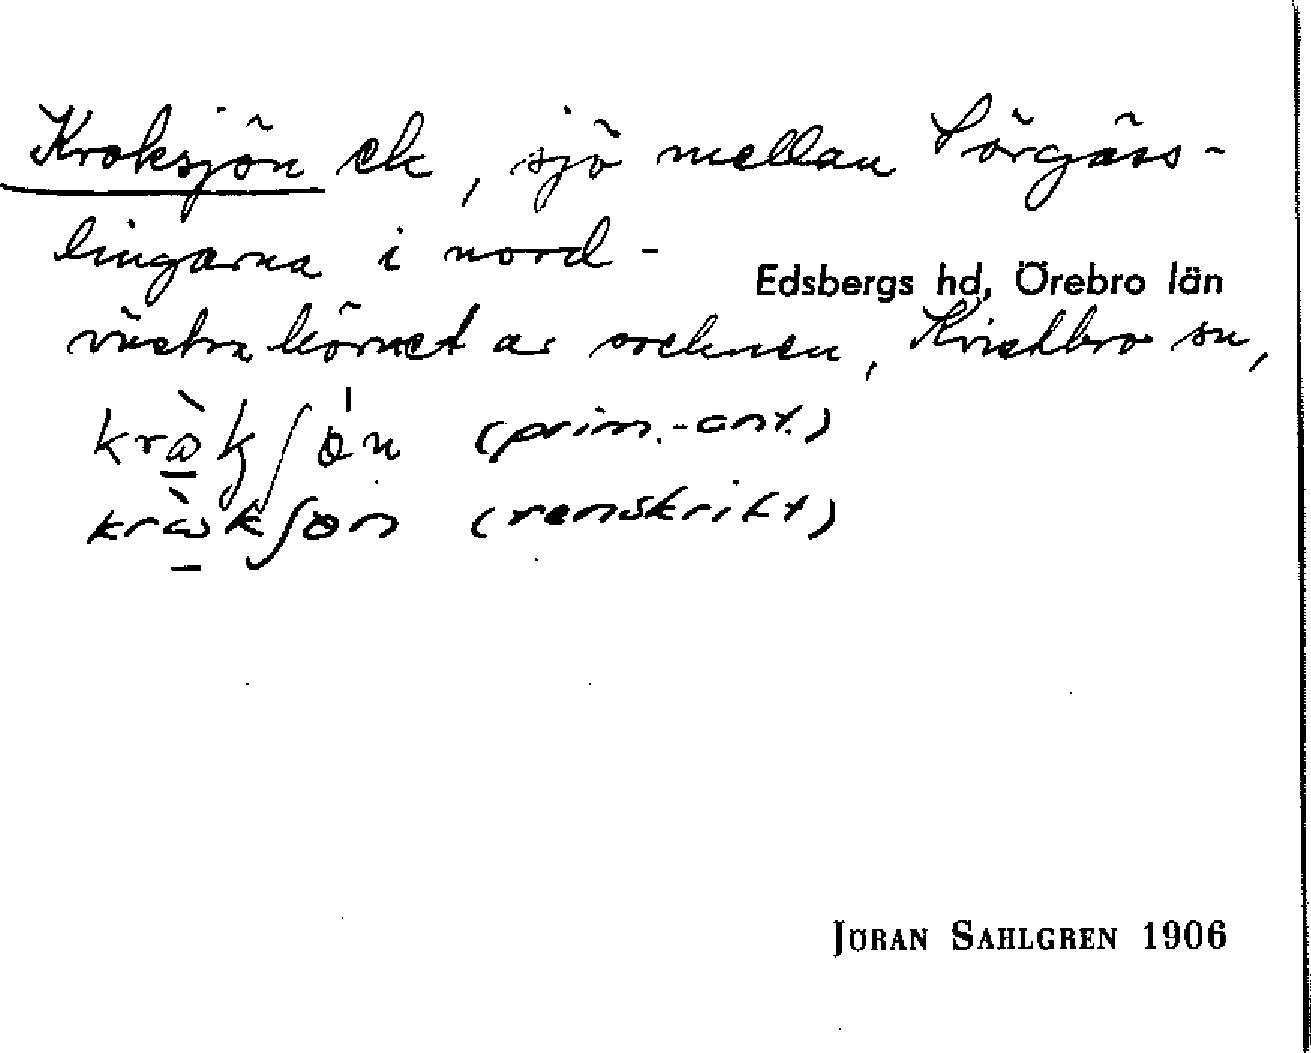 Kroksjön ek, sjö mellan Sörgäss-
lingarna i nord-
västra hörnet av socknen, Kvistbro sn,
Edsbergs hd, Örebro län
(prim.-ant.)
(renskrift)
JÖRAN SAHLGREN 1906